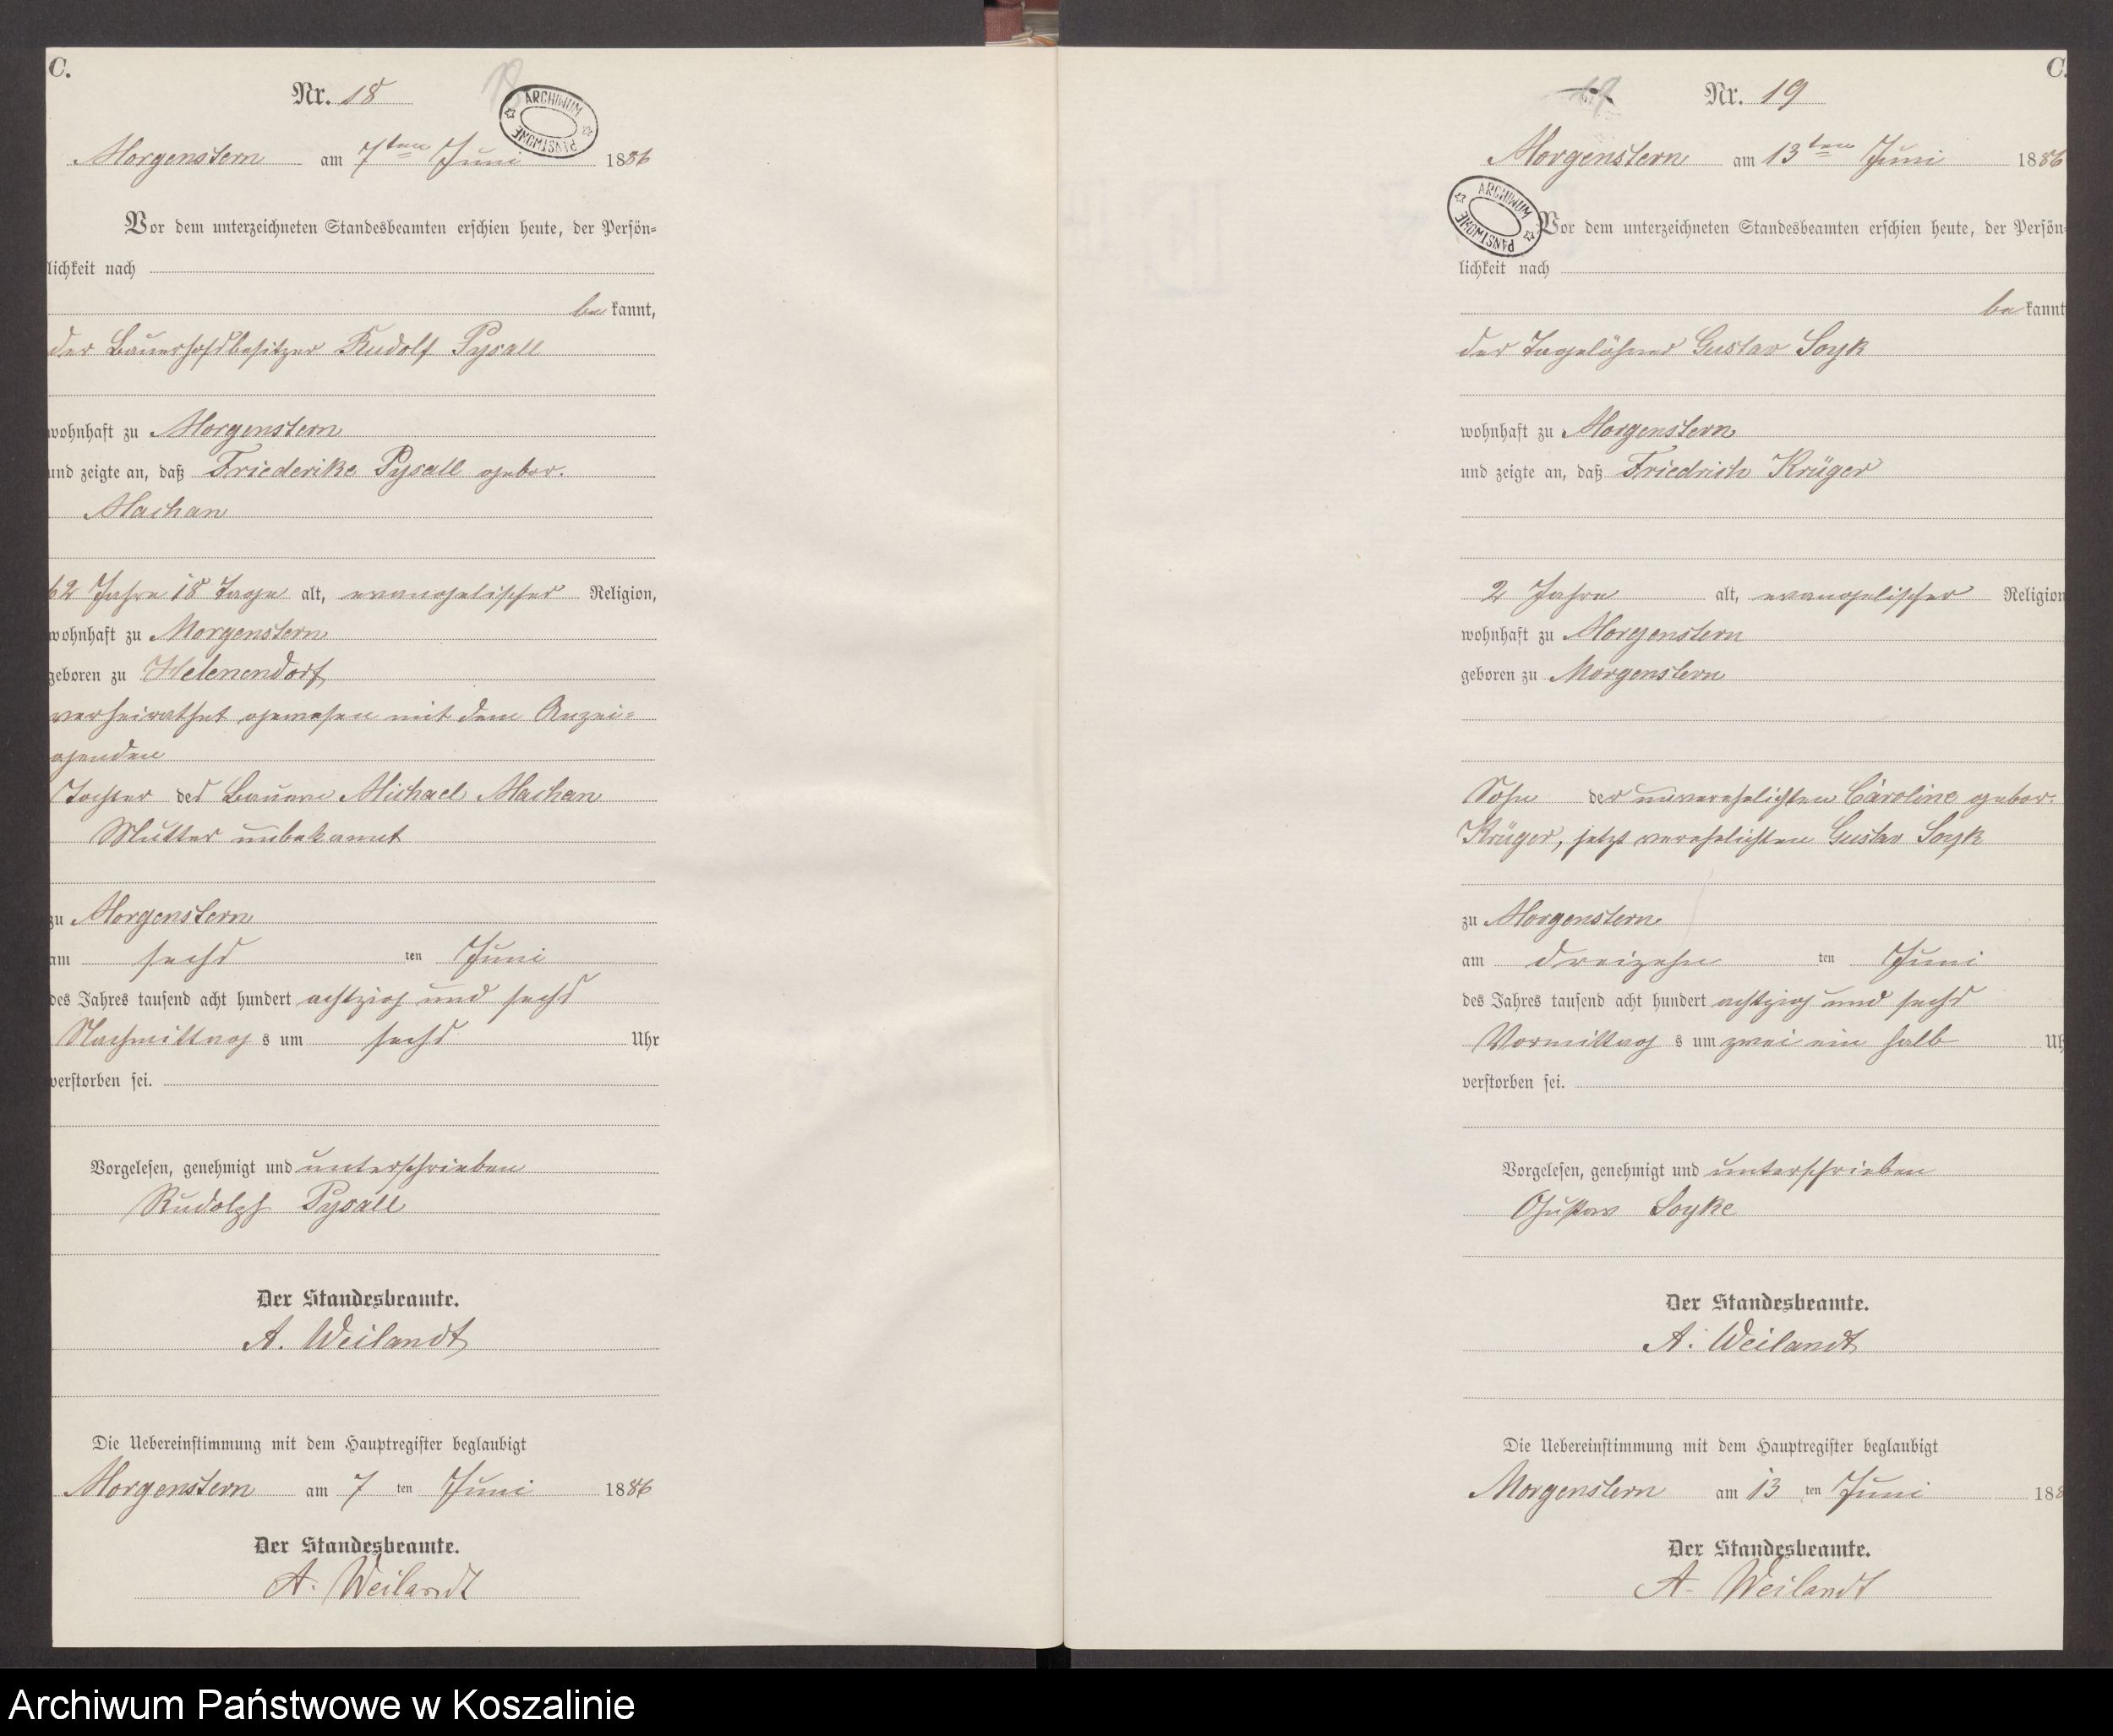 C.
Nr. 18
18
ARCHIWUM PAŃSTWOWE
Morgenstern am 7ten Juni 1886
Vor dem unterzeichneten Standesbeamten erschien heute, der Persön=
lichkeit nach
be kannt,
der Bauerhofsbesitzer Rudolf Pysall
wohnhaft zu Morgenstern
und zeigte an, daß Friederike Pysall gebor.
Machan
62 Jahre 18 Tage alt, evangelischer Religion,
wohnhaft zu Morgenstern
geboren zu Helenendorf
verheirathet gewesen mit dem Anzei=
genden
Tochter des Bauern Michael Machan
Mutter unbekannt
zu Morgenstern
am sechs ten Juni
des Jahres tausend acht hundert achtzig und sechs
Nachmittag s um sechs Uhr
verstorben sei.
Vorgelesen, genehmigt und unterschrieben
Rudolph Pysall
Der Standesbeamte.
A. Weilandt
Die Uebereinstimmung mit dem Hauptregister beglaubigt
Morgenstern am 7 ten Juni 1886
Der Standesbeamte.
A. Weilandt
C.
19
Nr. 19
Morgenstern am 13ten Juni 1886
ARCHIWUM PAŃSTWOWE
Vor dem unterzeichneten Standesbeamten erschien heute, der Persön=
lichkeit nach
be kannt
der Tagelöhner Gustav Soyk
wohnhaft zu Morgenstern
und zeigte an, daß Friedrich Krüger
2 Jahre alt, evangelischer Religion
wohnhaft zu Morgenstern
geboren zu Morgenstern
Sohn der unverehelichten Caroline gebor.
Krüger, jetzt verehelichten Gustav Soyk
zu Morgenstern
am dreizehn ten Juni
des Jahres tausend acht hundert achtzig und sechs
Vormittag s um zwei ein halb Uh
verstorben sei.
Vorgelesen, genehmigt und unterschrieben
Gustav Soyke
Der Standesbeamte.
A. Weilandt
Die Uebereinstimmung mit dem Hauptregister beglaubigt
Morgenstern am 13 ten Juni 188
Der Standesbeamte.
A. Weilandt
Archiwum Państwowe w Koszalinie